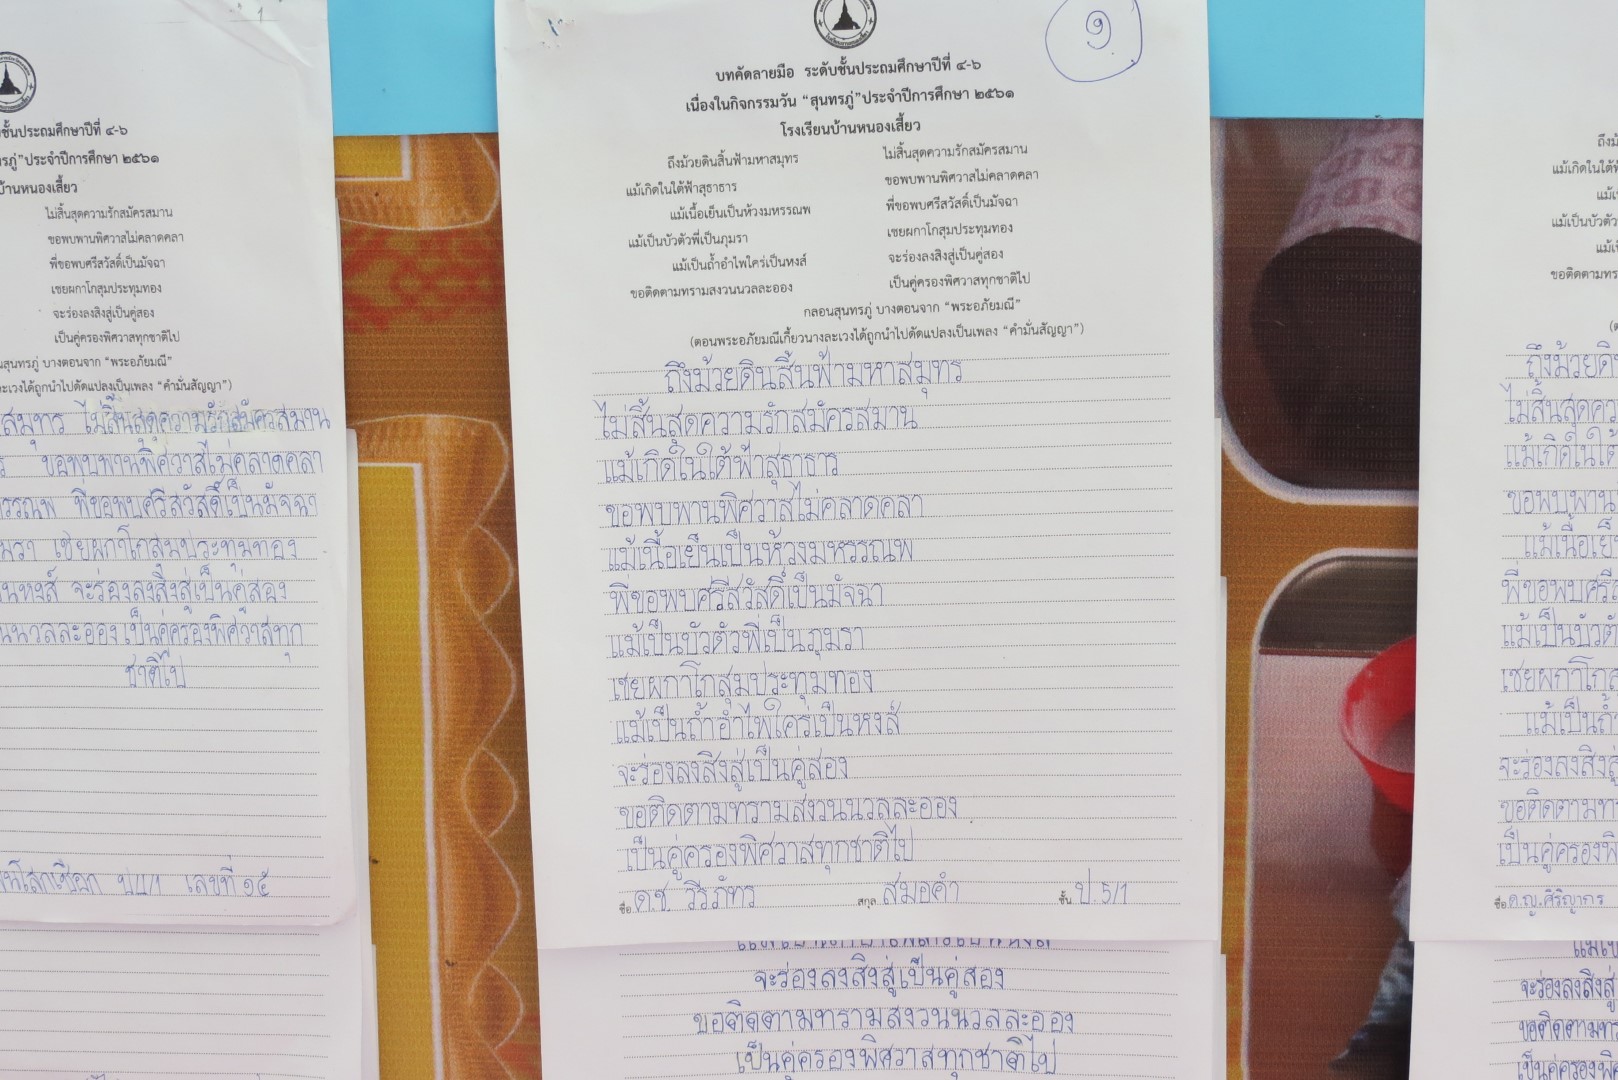 ๑
บทคัดลายมือ ระดับชั้นประถมศึกษาปีที่ ๔-๖
เนื่องในกิจกรรมวัน “สุนทรภู่”ประจำปีการศึกษา ๒๕๖๑
โรงเรียนบ้านหนองเสี้ยว
ถึงม้วยดินสิ้นฟ้ามหาสมุทร ไม่สิ้นสุดความรักสมัครสมาน
แม้เกิดในใต้ฟ้าสุธาธาร ขอพบพานพิศวาสไม่คลาดคลา
แม้เนื้อเย็นเป็นห้วงมหรรณพ พี่ขอพบศรีสวัสดิ์เป็นมัจฉา
แม้เป็นบัวตัวพี่เป็นภุมรา เชยผกาโกสุมประทุมทอง
แม้เป็นถ้ำอำไพใคร่เป็นหงส์ จะร่องลงสิงสู่เป็นคู่สอง
ขอติดตามทรามสงวนนวลละออง เป็นคู่ครองพิศวาสทุกชาติไป
กลอนสุนทรภู่ บางตอนจาก “พระอภัยมณี”
(ตอนพระอภัยมณีเกี้ยวนางละเวงได้ถูกนำไปดัดแปลงเป็นเพลง “คำมั่นสัญญา”)
ถึงม้วยดินสิ้นฟ้ามหาสมุทร
ไม่สิ้นสุดความรักสมัครสมาน
แม้เกิดในใต้ฟ้าสุธาธาร
ขอพบพานพิศวาสไม่คลาดคลา
แม้เนื้อเย็นเป็นห้วงมหรรณพ
พี่ขอพบศรีสวัสดิ์เป็นมัจฉา
แม้เป็นบัวตัวพี่เป็นภุมรา
เชยผกาโกสุมประทุมทอง
แม้เป็นถ้ำอำไพใคร่เป็นหงส์
จะร่องลงสิงสู่เป็นคู่สอง
ขอติดตามทรามสงวนนวลละออง
เป็นคู่ครองพิศวาสทุกชาติไป
ชื่อ ด.ช. วีรภัทร สกุล สมอคำ ชั้น ป.5/1
จะร่องลงสิงสู่เป็นคู่สอง
ขอติดตามทรามสงวนนวลละออง
เป็นคู่ครองพิศวาสทุกชาติไป
ชั้นประถมศึกษาปีที่ ๔-๖
ประจำปีการศึกษา ๒๕๖๑
บ้านหนองเสี้ยว
ไม่สิ้นสุดความรักสมัครสมาน
ขอพบพานพิศวาสไม่คลาดคลา
พี่ขอพบศรีสวัสดิ์เป็นมัจฉา
เชยผกาโกสุมประทุมทอง
จะร่องลงสิงสู่เป็นคู่สอง
เป็นคู่ครองพิศวาสทุกชาติไป
สุนทรภู่ บางตอนจาก “พระอภัยมณี”
ละเวงได้ถูกนำไปดัดแปลงเป็นเพลง “คำมั่นสัญญา”)
สมุทร ไม่สิ้นสุดความรักสมัครสมาน
ขอพบพานพิศวาสไม่คลาดคลา
พี่ขอพบศรีสวัสดิ์เป็นมัจฉา
เชยผกาโกสุมประทุมทอง
หงส์ จะร่องลงสิงสู่เป็นคู่สอง
นวลละออง เป็นคู่ครองพิศวาสทุก
ชาติไป
เลขที่ ๑๕
ถึงม้วยดิน
แม้เกิดในใต้
ขอพบพาน
แม้เนื้อเย็น
พี่ขอพบศรี
แม้เป็นบัว
เชยผกาโกสุ
แม้เป็นถ้ำ
จะร่องลงสิงสู่
ขอติดตาม
เป็นคู่ครอง
ชื่อ ด.ญ. ศิริญากร
จะร่องลงสิงสู่
ขอติดตาม
เป็นคู่ครอง